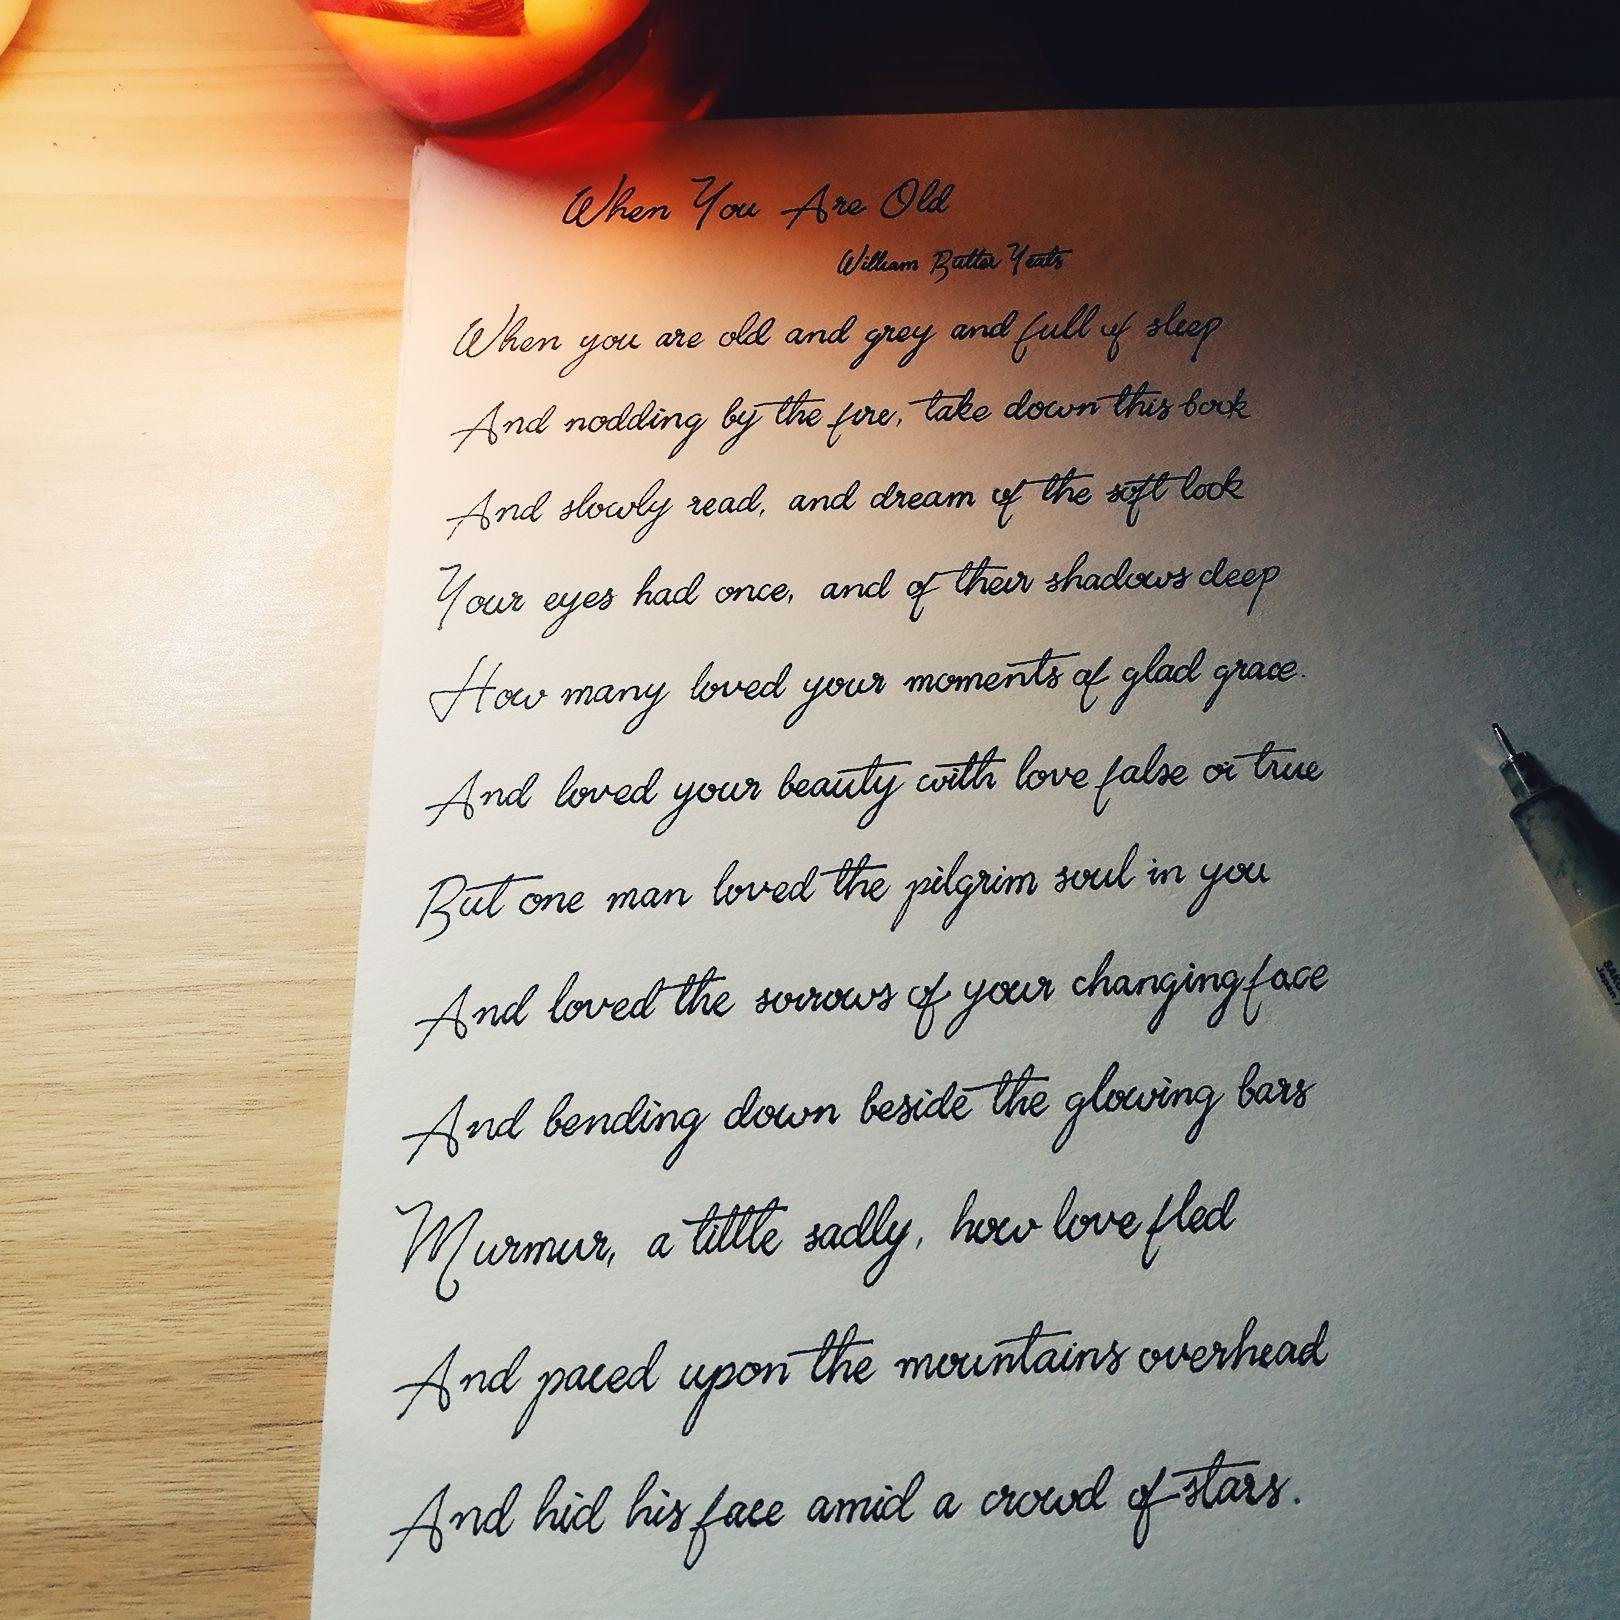 When You Are Old
William Butler Yeats
When you are old and grey and full of sleep
And nodding by the fire, take down this book
And slowly read, and dream of the soft look
Your eyes had once, and of their shadows deep
How many loved your moments of glad grace.
And loved your beauty with love false or true
But one man loved the pilgrim soul in you
And loved the sorrows of your changing face
And bending down beside the glowing bars
Murmur, a little sadly, how love fled
And paced upon the mountains overhead
And hid his face amid a crowd of stars.